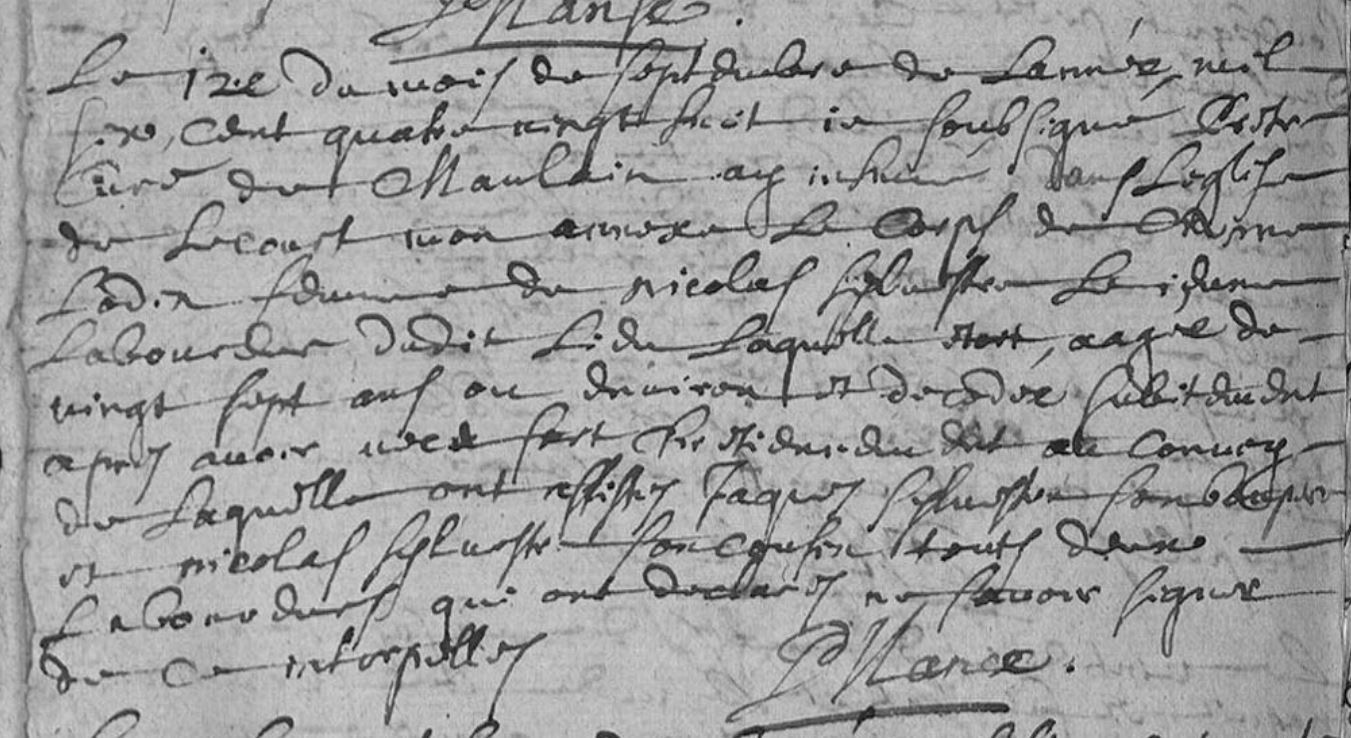 Nance.
Le 12e du mois de septembre de Lannée mil
six cent quatre vingt huit ie soubsigné Prêtre
Curé de Maulain ay inhumé dans Leglise
de Lecourt mon annexe Le Corps de
femme de nicolas sylvestre Le ieune
Laboureur dudit Lieu Laquelle etoit aagée de
vingt sept ans ou environ et decedée subitement
apres avoir vecu fort chretiennement au Convoy
de Laquelle ont assistés Jaques sylvestre son beaupere
et nicolas sylvestre son cousin touts deux
Laboureurs qui ont declarés ne savoir signer
de Ce interpellés
Nance.